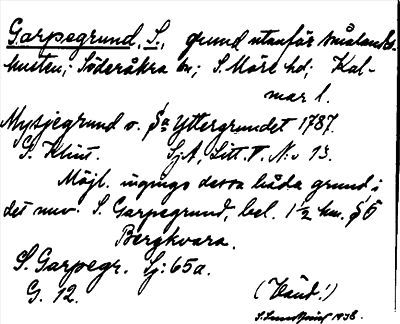 Garpegrund, S., grund utanför Smålands-
kusten; Söderåkra sn; S. Möre hd; Kal-
mar l.
Mysjegrund o. Yttergrundet 1787.
G. Klint. SjA, Litt. V. N:o 13.
Möjl. ingingo dessa båda grund i
det nuv. S. Garpegrund, bel. 1 1/2 km. SÖ
Bergkvara.
S. Garpegr. Sj: 65a.
G. 12. (Vänd!)
1938.